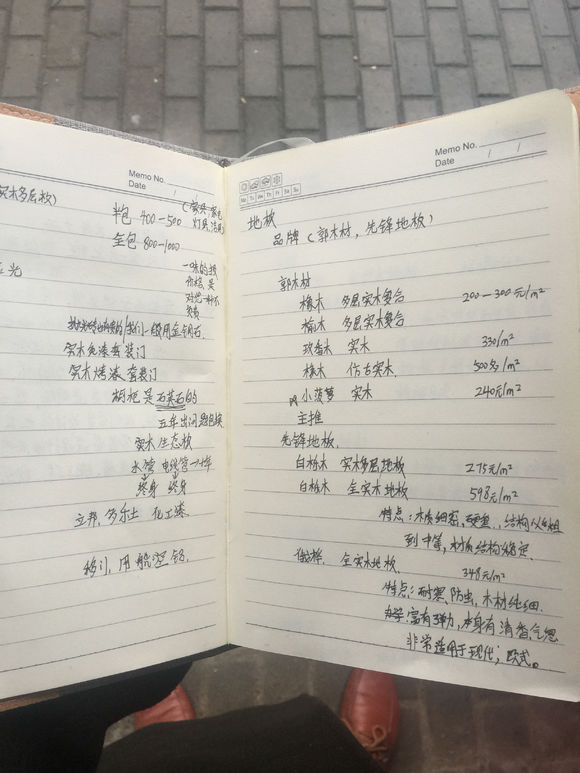 Memo No.
Date / /
实木多层板)
半包 400-500 (家具 家电
灯具 洁具
全包 800-1000
光
一味的拼
价格 是
对您一种不
负责
我们一般用金钢石.
实木免漆套装门
实木烤漆套装门
橱柜是石英石的
五年出问题包换
实木生态板
水管 电线管
终身 终身
立邦, 多乐士
移门, 用
Memo No.
Date / /
Mo Tu We Th Fr Sa Su
地板
品牌 (郭木材, 先锋地板)
郭木材
橡木 多层实复合 200-300元/m²
榆木 多层实复合
玖香木 实木 330/m²
橡木 仿古实木. 500多/m²
小菠萝 实木 240元/m²
主推
先锋地板.
白栎木 实木多层地板 275元/m²
白栎木 全实木地板 598元/m²
特点: 木质细密, 硬重, 结构从粗
到中等, 材质结构稳定.
全实木地板 348元/m²
特点: 耐寒、防虫, 木材纯细.
富有弹力, 本身有清香气息
非常适用于现代; 欧式。